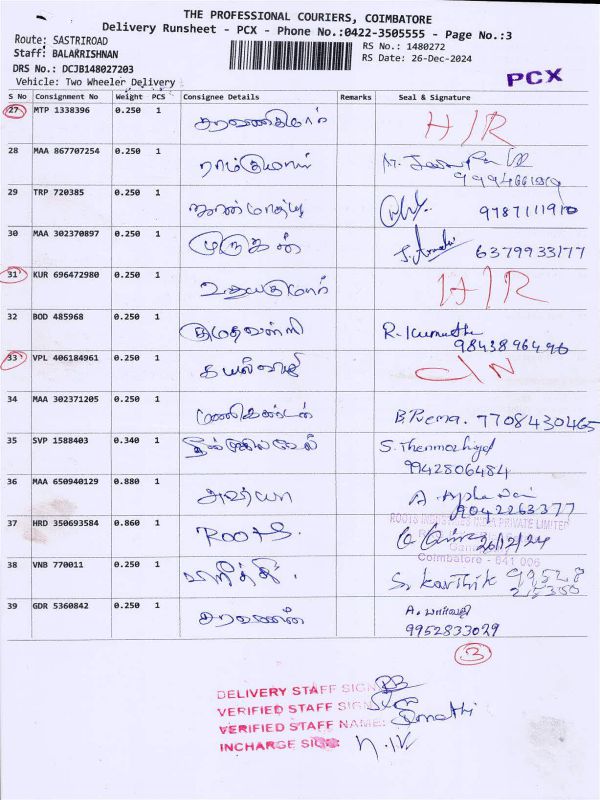 THE PROFESSIONAL COURIERS, COIMBATORE
Delivery Runsheet - PCX - Phone No.:0422-3505555 - Page No.:3
Route: SASTRIROAD
RS No.: 1480272
Staff: BALAKRISHNAN
RS Date: 26-Dec-2024
DRS No.: DCJB148027203
Vehicle: Two Wheeler Delivery
PCX
S No Consignment No Weight PCS Consignee Details Remarks Seal & Signature
27 MTP 1338396 0.250 1 சரவணகுமார் H/R
28 MAA 867707254 0.250 1 ராம்குமார்
29 TRP 720385 0.250 1 9787111910
30 MAA 302370897 0.250 1 முருகன் 6379933177
31 KUR 696472980 0.250 1 உதயகுமார் H/R
32 BOD 485968 0.250 1 குமுதவள்ளி R. Kumutha
9843896496
33 VPL 406184961 0.250 1 கயல்விழி C/N
34 MAA 302371205 0.250 1 மணிகண்டன் B. Prema. 7708430465
35 SVP 1588403 0.340 1 S. Thenmozhi
9942806484
36 MAA 650940129 0.880 1 9042263377
37 HRD 350693584 0.860 1 ROOTS. 26/12/24
ROOTS INDUSTRIES INDIA PRIVATE LIMITED
Coimbatore - 641 006
38 VNB 770011 0.250 1 S. Karthik 99528
39 GDR 5360842 0.250 1 சரவணன் A. பார்வதி
9952833029
3
DELIVERY STAFF SIGN
VERIFIED STAFF SIGN
VERIFIED STAFF NAME:
INCHARGE SIGN: